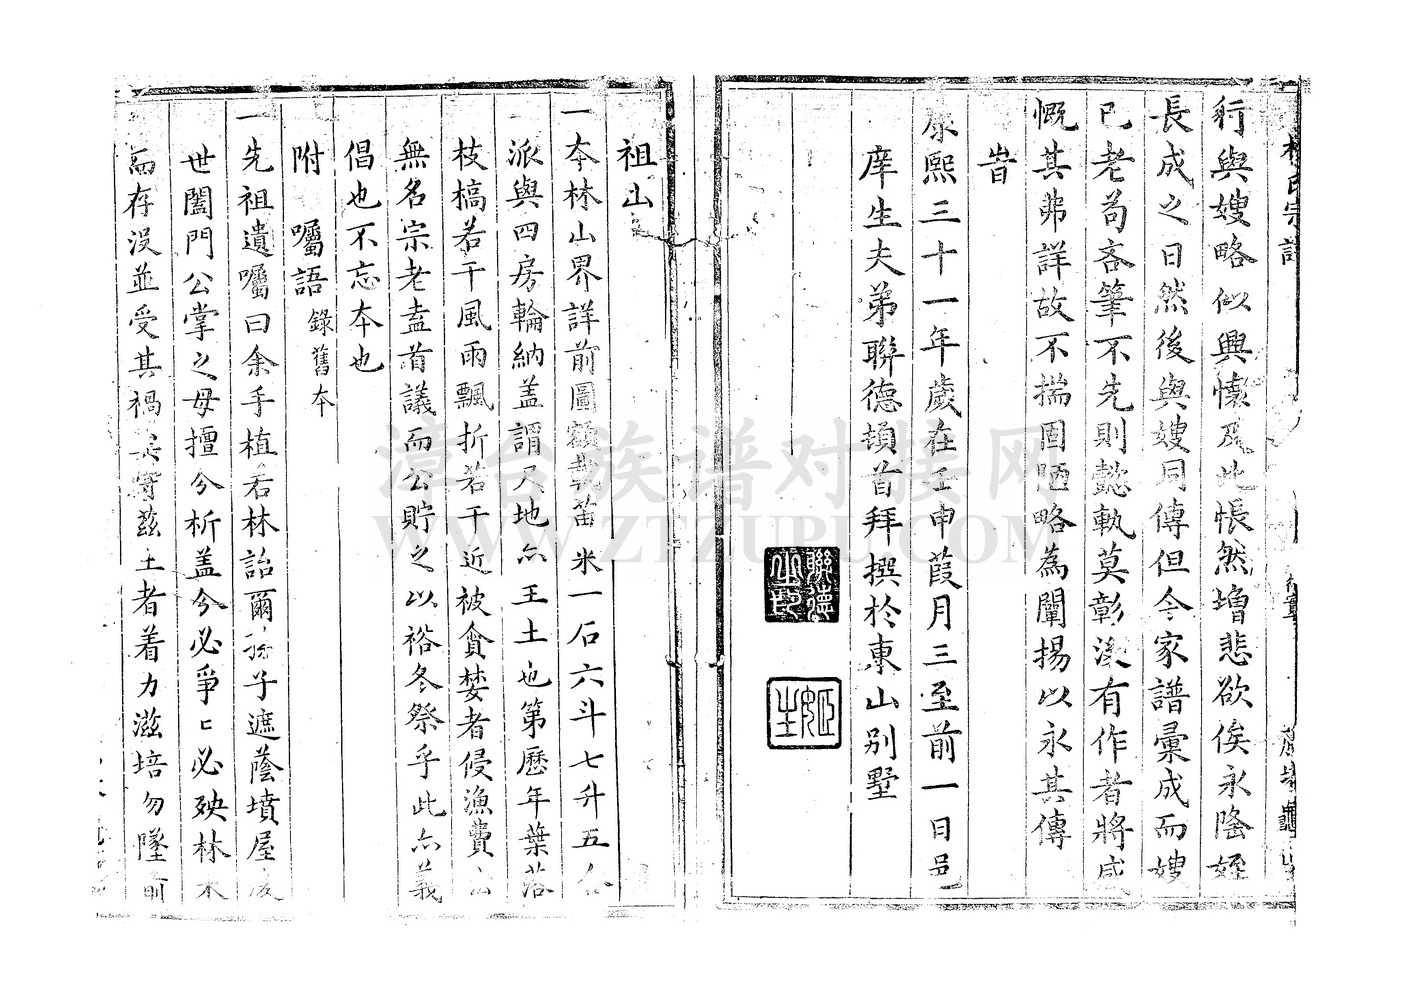 氏宗譜
行與嫂略似興懷及此悵然增悲欲俟永隆姪
長成之日然後與嫂同傳但今家譜彙成而嫂
已老苟吝筆不先則懿軌莫彰後有作者將咸
慨其弗詳故不揣固陋略為闡揚以永其傳
旹
康熙三十一年歲在壬申葭月三至前一日邑
庠生夫弟聯德頓首拜撰於東山別墅
聯德之印
祖山
一本林山界詳前圖額載苗米一石六斗七升五合
派與四房輪納盖謂尺地亦王土也第歷年葉落
枝槁若干風雨飄折若干近被貪婪者侵漁費
無名宗老盍首議而公貯之以裕冬祭乎此亦義
倡也不忘本也
附 囑語 錄舊本
一先祖遺囑曰余手植若林詒爾孫子遮蔭墳屋
世闔門公掌之毋擅分析盖分必爭〻必殃林木
而存沒並受其禍 兹土者着力滋培勿墜前
漳台族谱对接网
WWW.ZTZUPU.COM